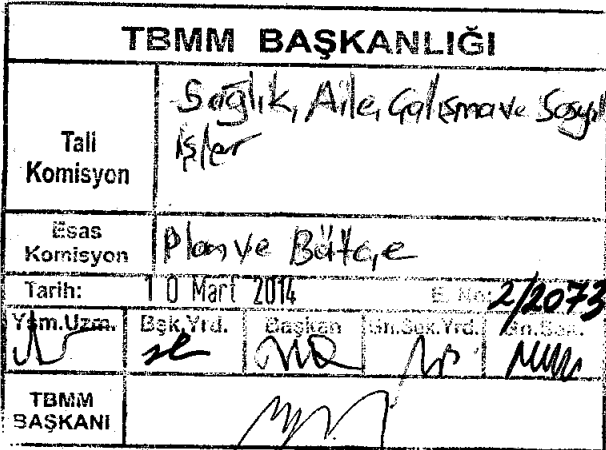 TBMM BAŞKANLIĞI
Tali Komisyon
Sağlık, Aile, Çalışma ve Sosyal
İşler
Esas Komisyon
Plan ve Bütçe
Tarih: 10 Mart 2014 E. No: 2/2073
Ysm.Uzm. Bşk.Yrd. Başkan Gn.Sek.Yrd. Gn.Sek.
TBMM BAŞKANI